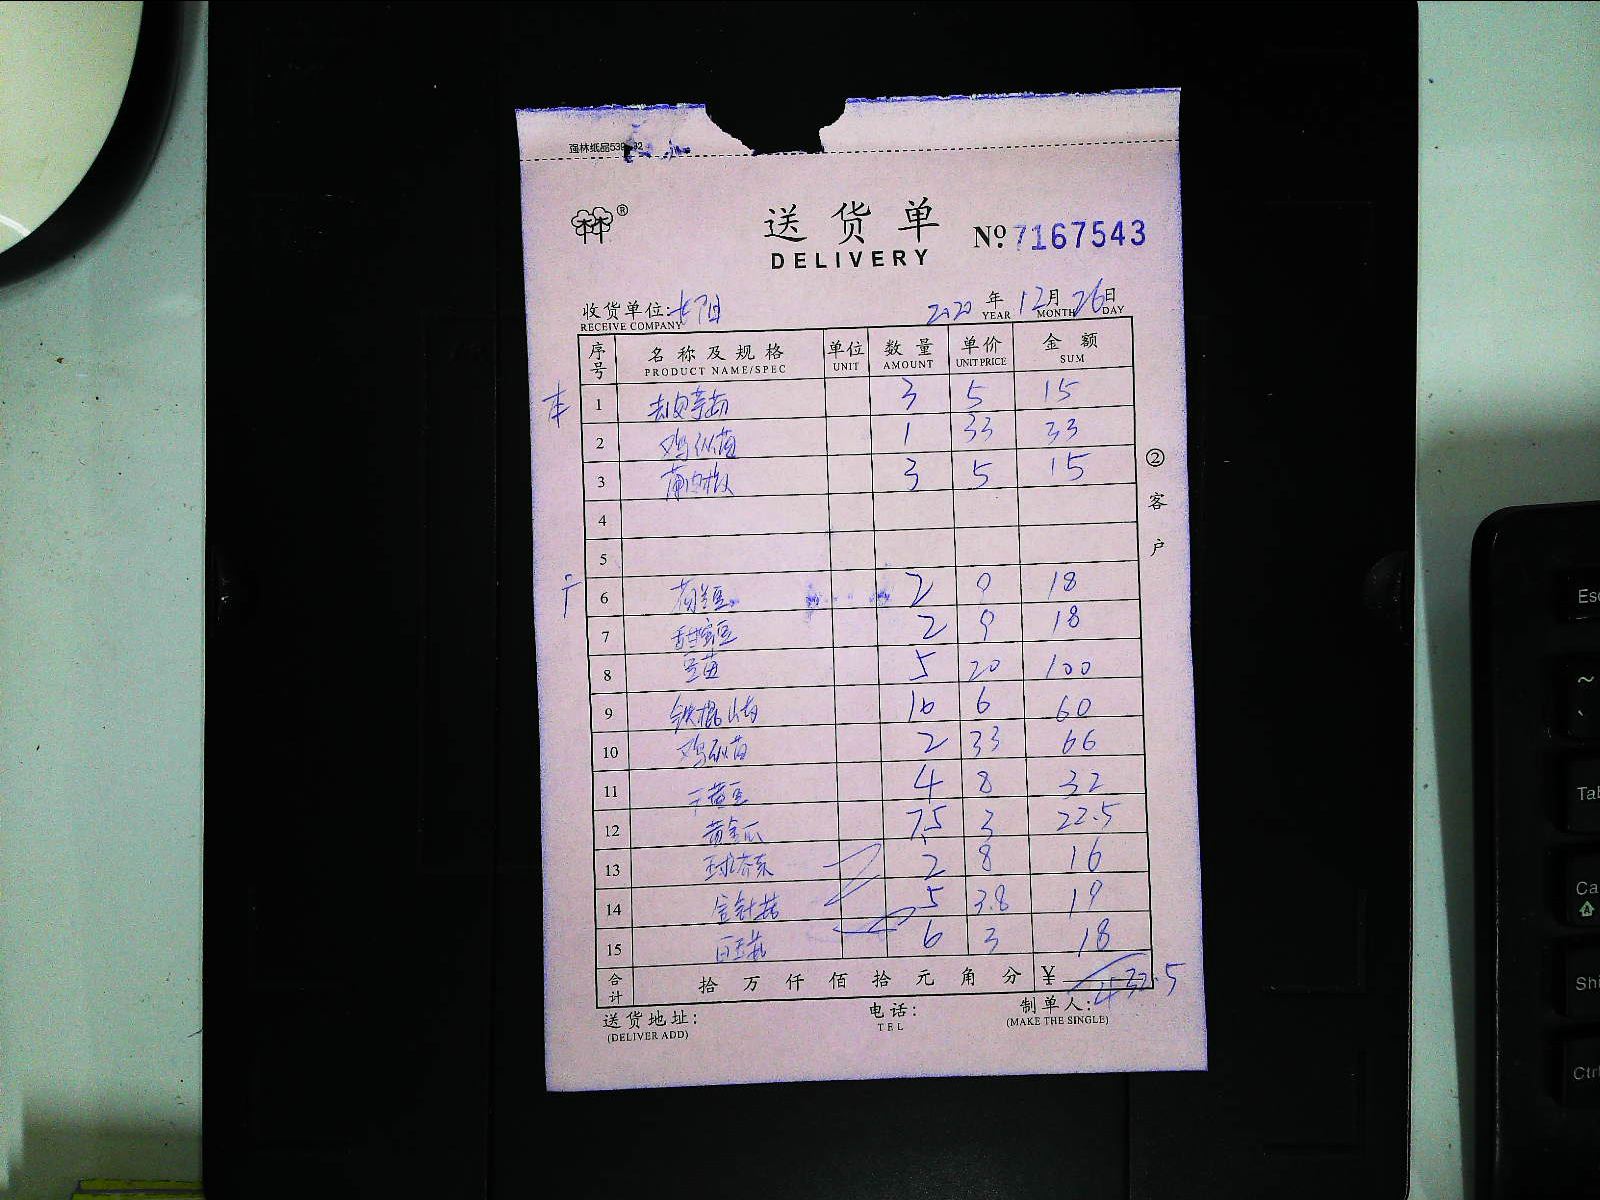 强林纸品53
®
送货单
DELIVERY
№ 7167543
收货单位:
RECEIVE COMPANY
2020 年 12 月 26 日
YEAR MONTH DAY
序号 名称及规格 单位 数量 单价 金额
PRODUCT NAME/SPEC UNIT AMOUNT UNIT PRICE SUM
本
1 3 5 15
2 鸡枞菌 1 33 33
3 3 5 15
4
5
②客户
6 荷兰豆 2 9 18
7 甜蜜豆 2 9 18
8 豆苗 5 20 100
9 铁棍山药 10 6 60
10 鸡枞菌 2 33 66
11 干黄豆 4 8 32
12 黄金瓜 7.5 3 22.5
13 2 8 16
14 金针菇 5 3.8 19
15 白玉菇 6 3 18
合计 拾万仟佰拾元角分 ¥ 432.5
送货地址: 电话: 制单人:
(DELIVER ADD) TEL (MAKE THE SINGLE)
Esc
~
`
Tab
Ca
Shi
Ctrl